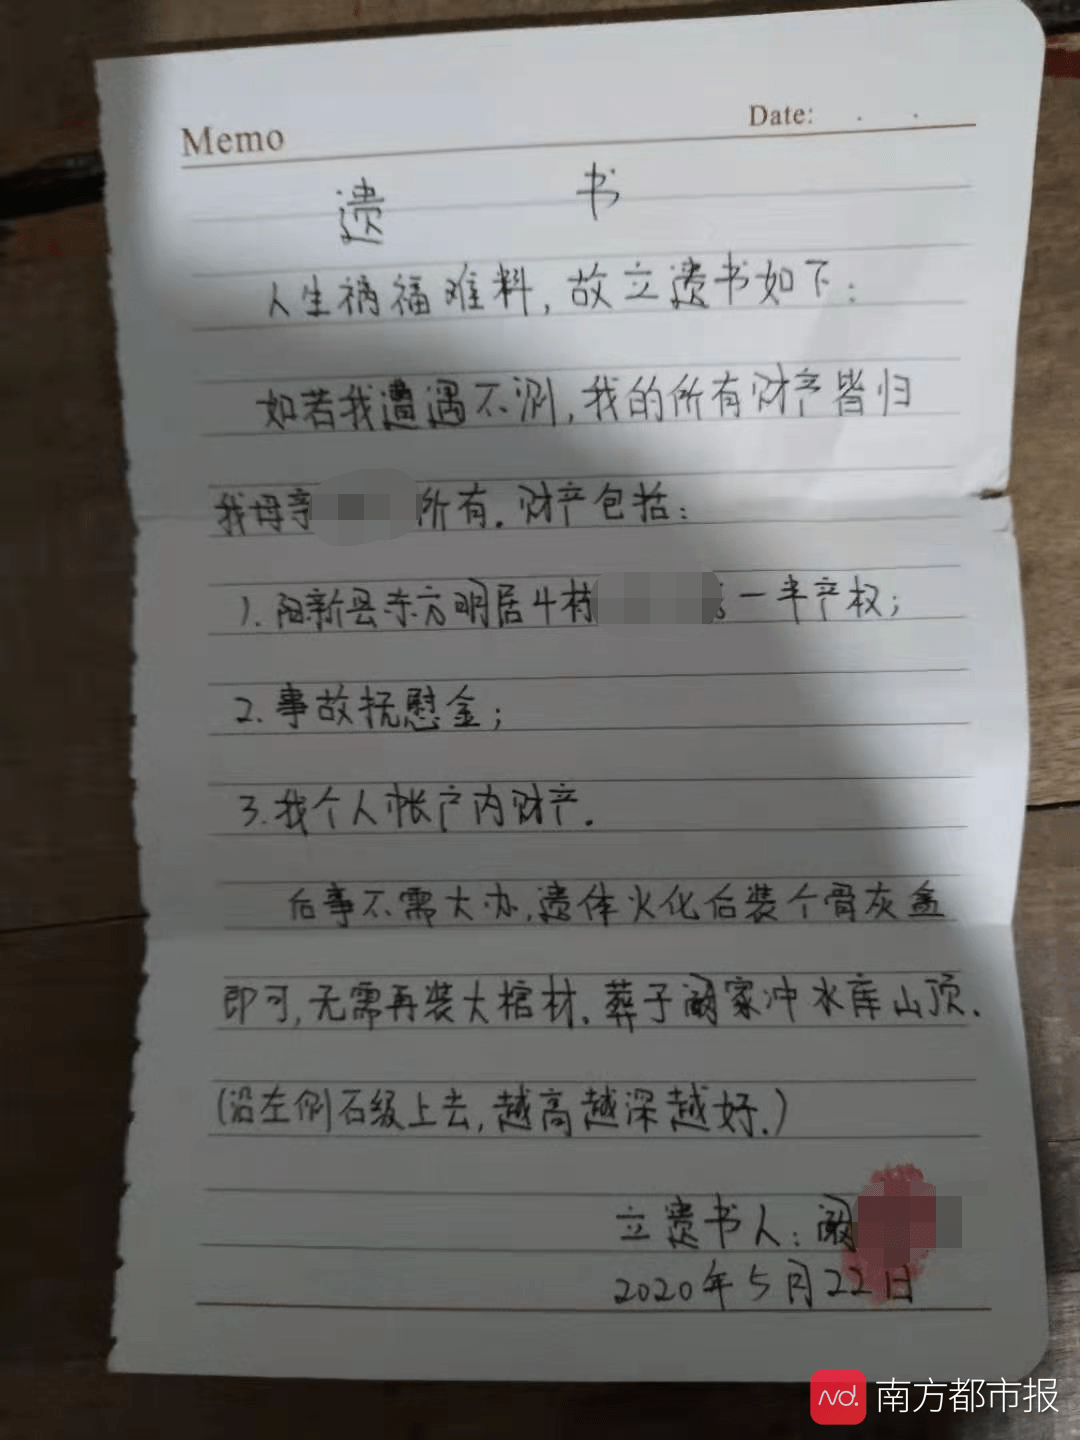 Memo
Date: . .
遗 书
人生祸福难料,故立遗书如下:
如若我遭遇不测,我的所有财产皆归
我母亲 所有.财产包括:
1.阳新县东方明居4栋 一半产权;
2.事故抚慰金;
3.我个人帐户内财产.
后事不需大办,遗体火化后装个骨灰盒
即可,无需再装大棺材.葬于阚家冲水库山顶.
(沿左侧石级上去,越高越深越好.)
立遗书人:阚
2020年5月22日
nd.
南方都市报